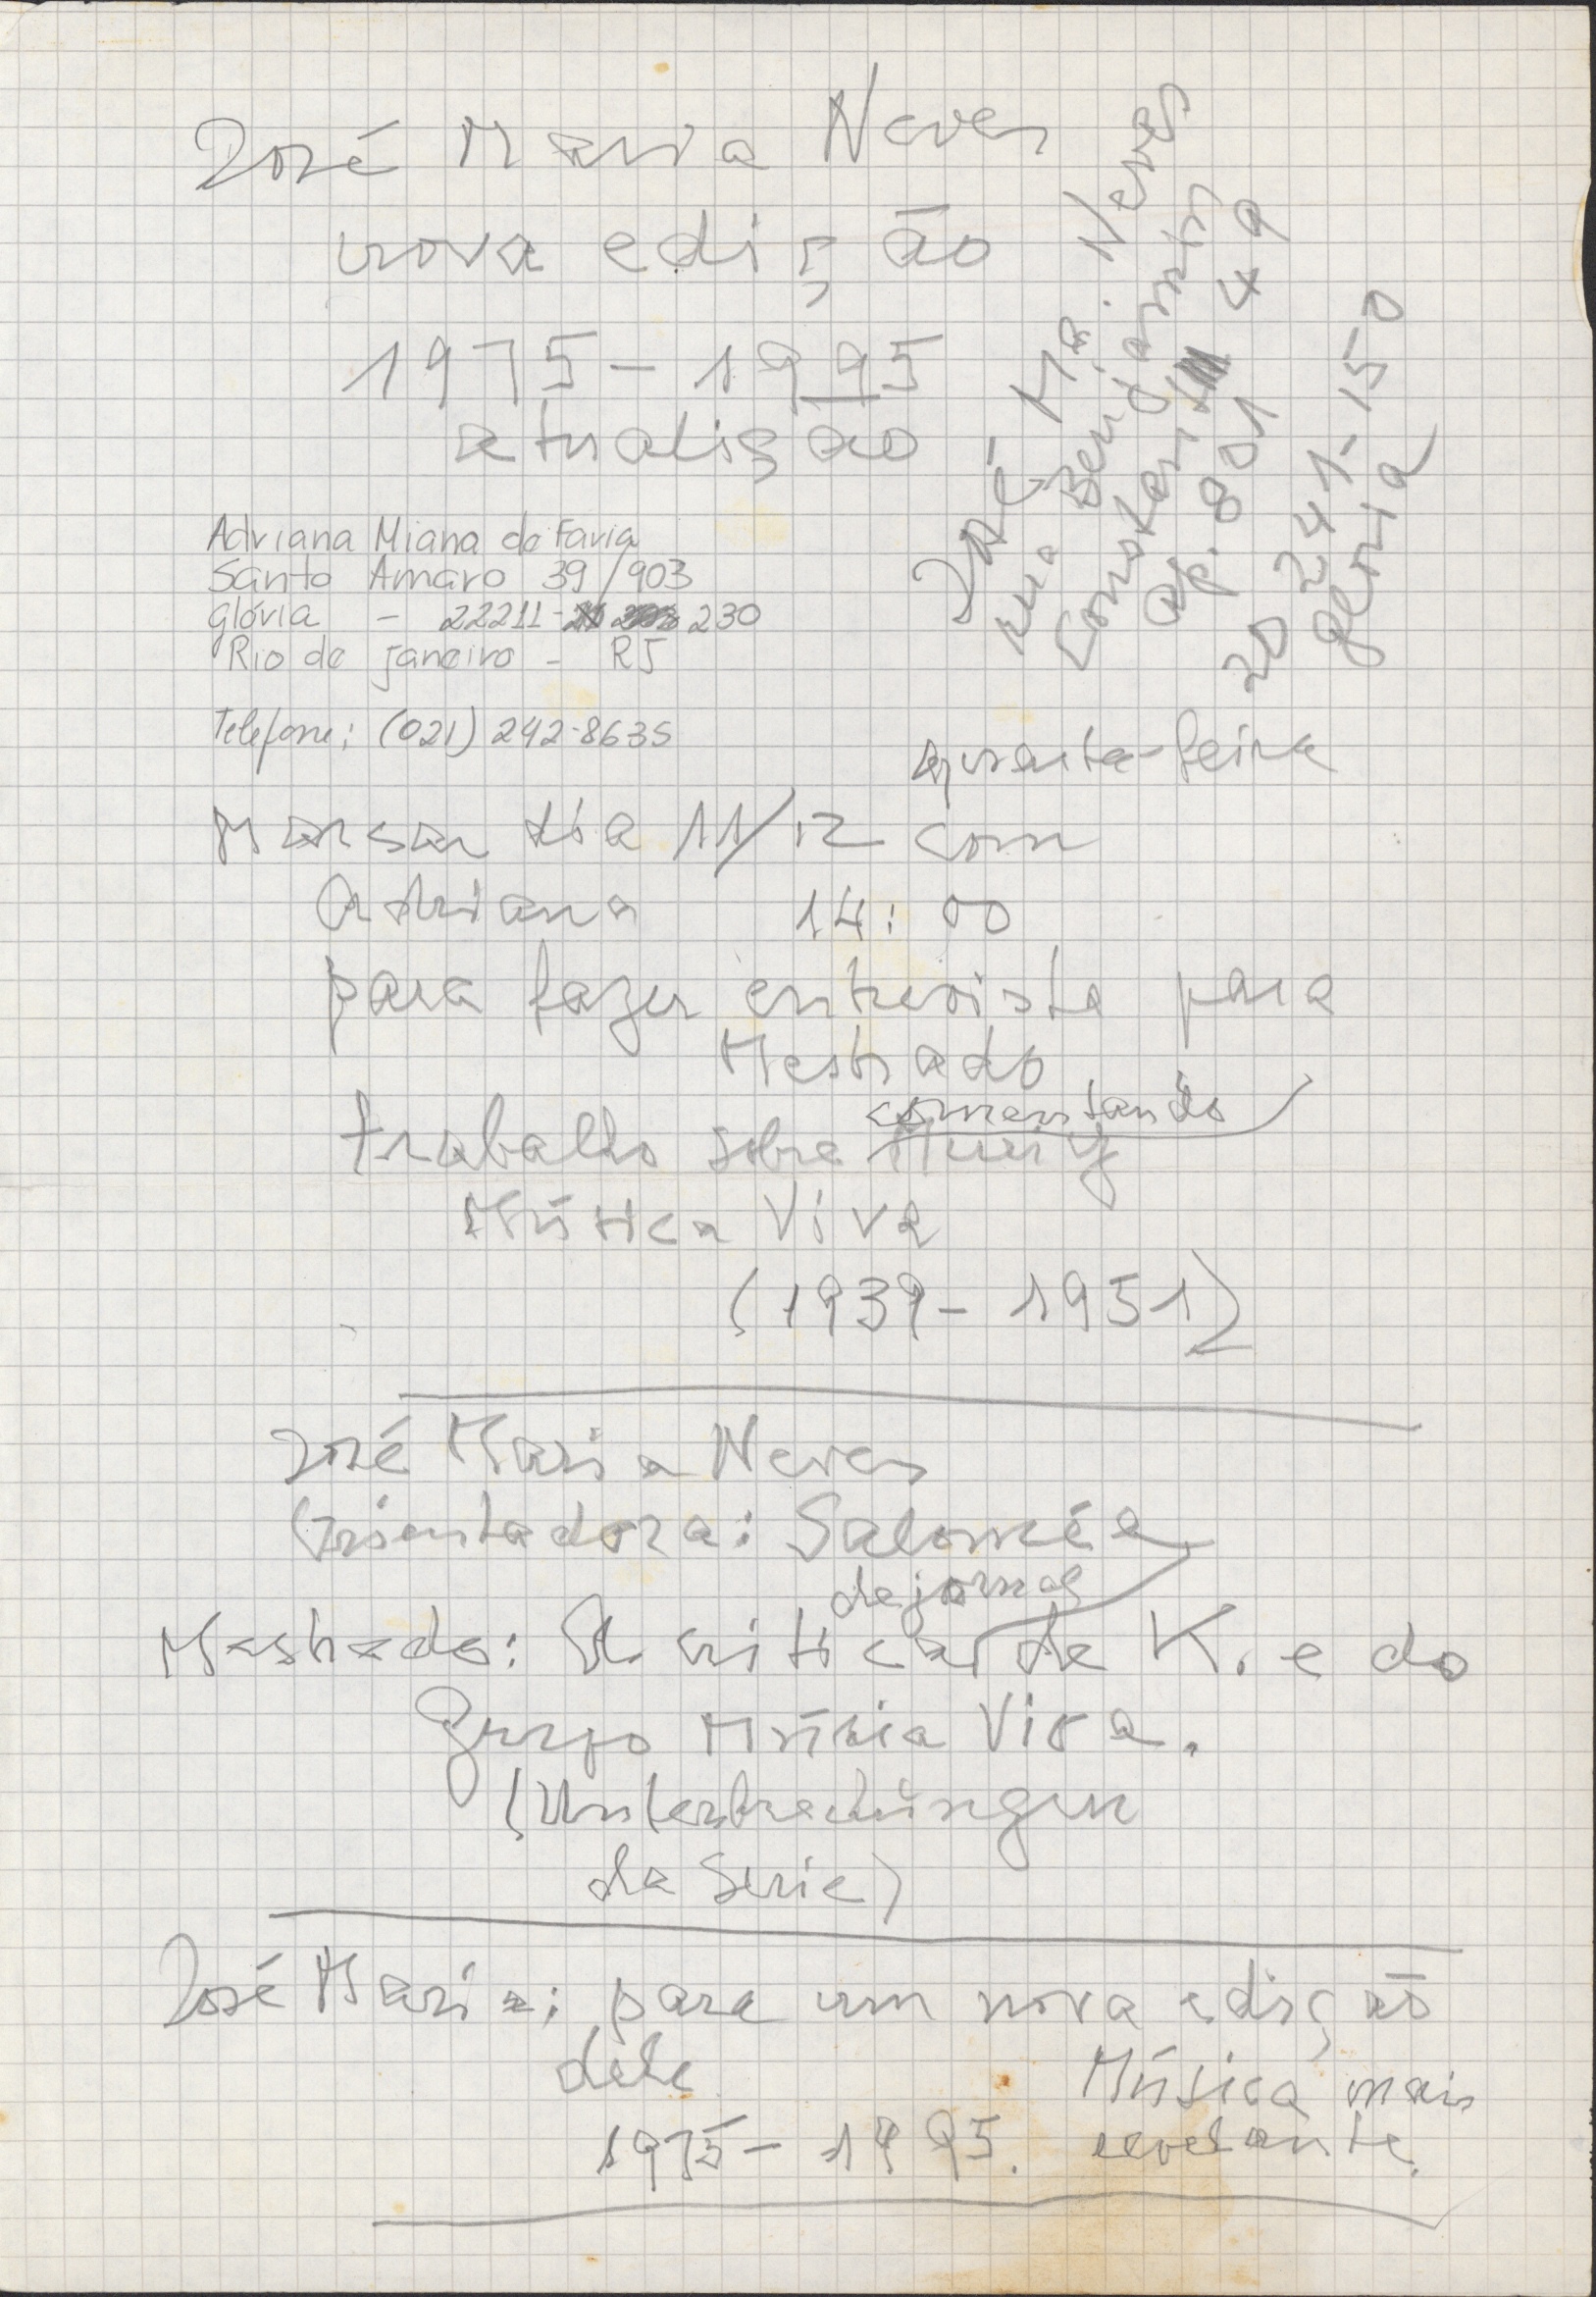 José Maria Neves
nova edição
1975-1995
atualisção
José Mª. Neves
rua Benjamin
Constant 49
Ap. 801
20241-150
glória
Adriana Miana de Faria
Santo Amaro 39/903
Glória - 22211- 230
Rio de Janeiro - RJ
Telefone: (021) 242-8635
quarta-feira
Marcar dia 11/12 com
Adriana 14:00
para fazer entrevista para
Mestrado
comentando
trabalho sobre
Música Viva
(1939-1951)
José Maria Neves
Orientadora: Saloméa
de jornal
Mestrado: criticas de K. e do
Grupo Música Viva.
(Unterbrechungen
da Serie)
José Maria: para um nova edição
dele
1975-1995.
Música mais
revelante.